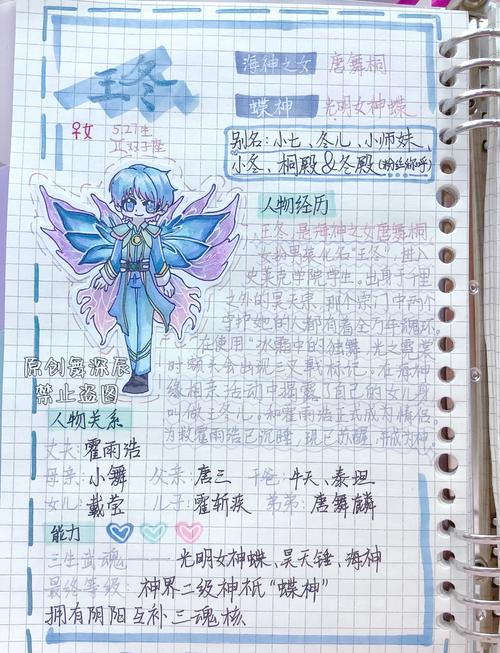 王冬
海神之女 唐舞桐
蝶神 光明女神蝶
♀女 5.27生
Ⅱ双子座
别名:小七、冬儿、小师妹、
小冬、桐殿&冬殿(粉丝称呼)
人物经历
王冬,是海神之女唐舞桐
女扮男装化名“王冬”,进入
史莱克学院学生。出身于千里
之外的昊天宗,那个宗门中两个
守护她的人都有着全万年魂环。
在使用“冰雪中的独舞,光之露堂
时额头会出现三叉戟标记,在海神
缘相亲活动中揭露了自己的女儿身
叫做王冬儿。和霍雨浩正式成为情侣
为救霍雨浩已沉睡,现已苏醒,并成为神
原创舞深辰
禁止盗图
人物关系
丈夫:霍雨浩
母亲:小舞 父亲:唐三 干爸:牛天、泰坦
女儿:戴莹 儿子:霍斩疾 弟弟:唐舞麟
能力
三生武魂 光明女神蝶、昊天锤、海神
最终等级:神界二级神祇“蝶神”
拥有阴阳互补三魂核